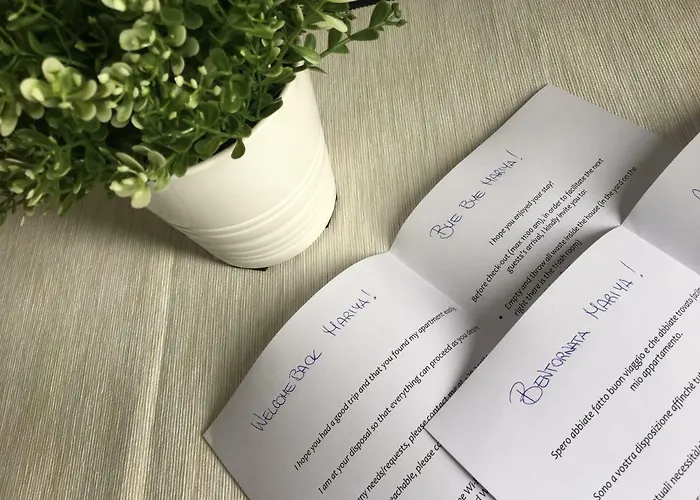 WELCOME BACK MARIYA!
I hope you had a good trip and that you found my apartment easily.
I am at your disposal so that everything can proceed as you desire.
any needs/requests, please contact me
reachable, please
BYE BYE MARIYA!
I hope you enjoyed your stay!
Before check-out (max 11:00 am), in order to facilitate the next
guests's arrival, I kindly invite you to:
• Empty and throw all waste inside the house (in the yard on the
right there is the trashroom).
BENTORNATA MARIYA!
Spero abbiate fatto buon viaggio e che abbiate trovato
mio appartamento.
Sono a vostra disposizione affinché